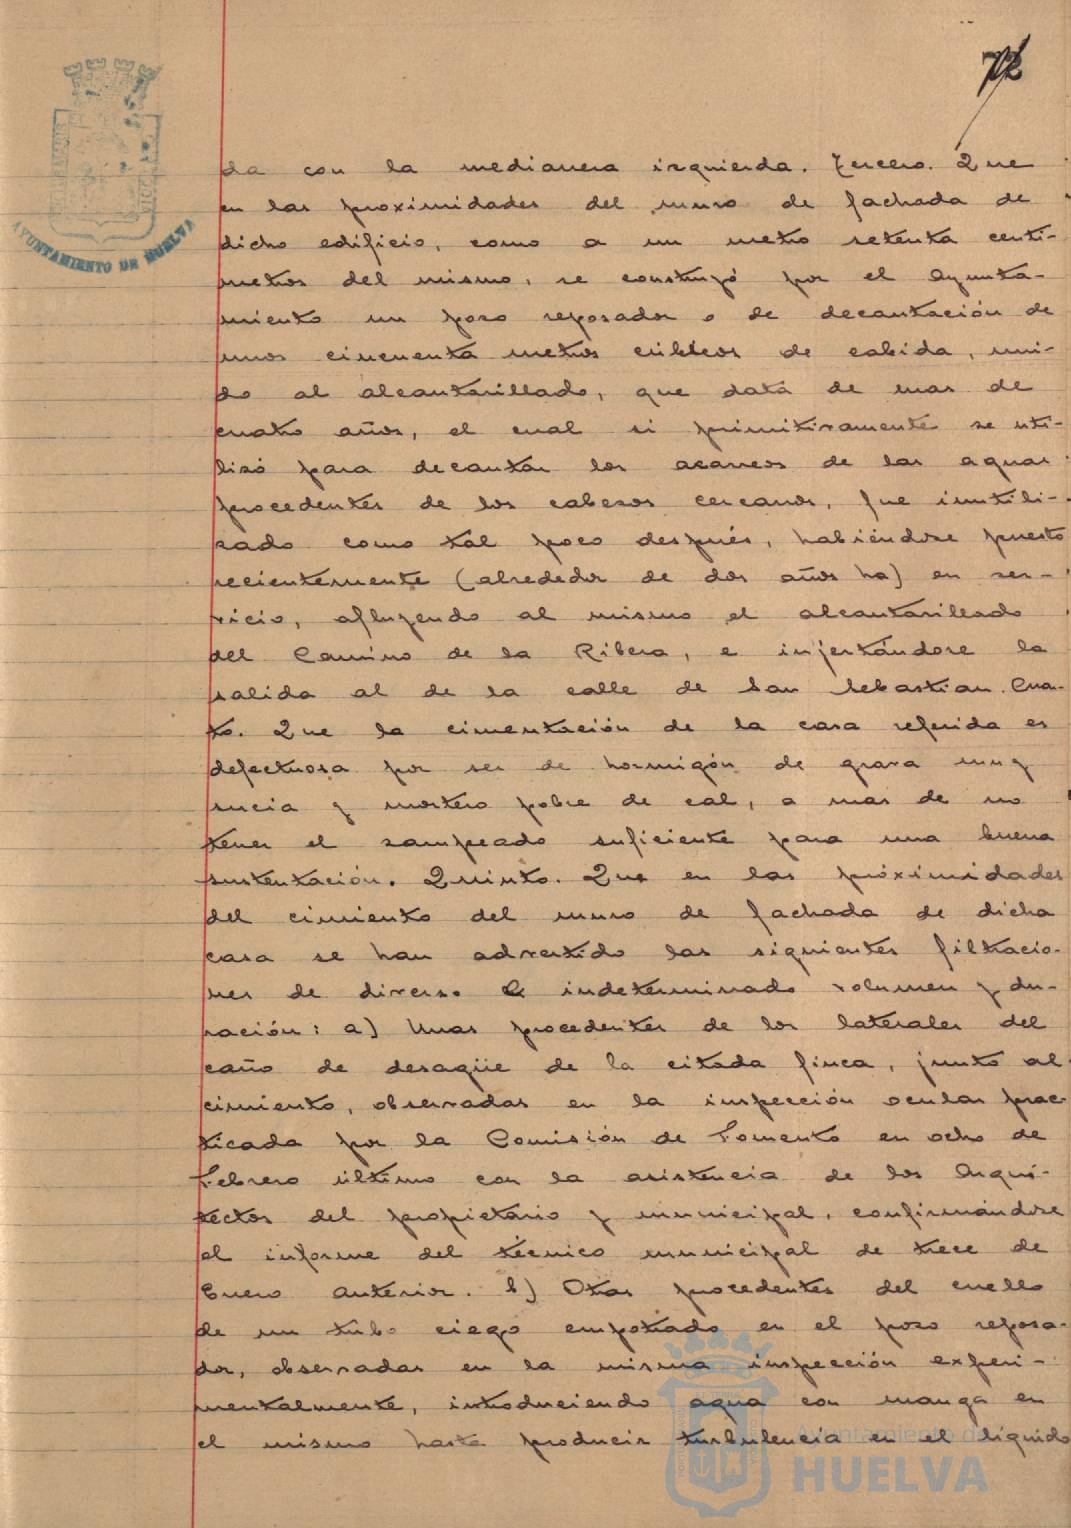 72
AYUNTAMIENTO DE HUELVA
da con la medianera izquierda. Tercero. Que
en las proximidades del muro de fachada de
dicho edificio, como a un metro setenta centi-
metros del mismo, se construyó por el Ayunta-
miento un pozo reposador o de decantación de
unos cincuenta metros cúbicos de cabida, uni-
do al alcantarillado, que data de mas de
cuatro años, el cual si primitivamente se uti-
lizó para decantar los acarreos de las aguas
procedentes de los cabezos cercanos, fue inutili-
zado como tal poco después, habiéndose puesto
recientemente (alrededor de dos años ha) en ser-
vicio, afluyendo al mismo el alcantarillado
del Camino de la Ribera, e injertándose la
salida al de la calle de San Sebastian. Cuar-
to. Que la cimentación de la casa referida es
defectuosa por ser de hormigón de grava muy
sucia y mortero pobre de cal, a mas de no
tener el zampeado suficiente para una buena
sustentación. Quinto. Que en las próximidades
del cimiento del muro de fachada de dicha
casa se han advertido las siguientes filtracio-
nes de diverso e indeterminado volumen y du-
ración: a) Unas procedentes de los laterales del
caño de desagüe de la citada finca, junto al
cimiento, observadas en la inspección ocular prac-
ticada por la Comisión de Fomento en ocho de
Febrero último con la asistencia de los Arqui-
tectos del propietario y municipal, confirmándose
el informe del técnico municipal de trece de
Enero anterior. b) Otras procedentes del cuello
de un tubo ciego empotrado en el pozo reposa-
dor, observadas en la misma inspección experi-
mentalmente, introduciendo agua con manga en
el mismo hasta producir turbulencia en el líquido
Ayuntamiento de
HUELVA